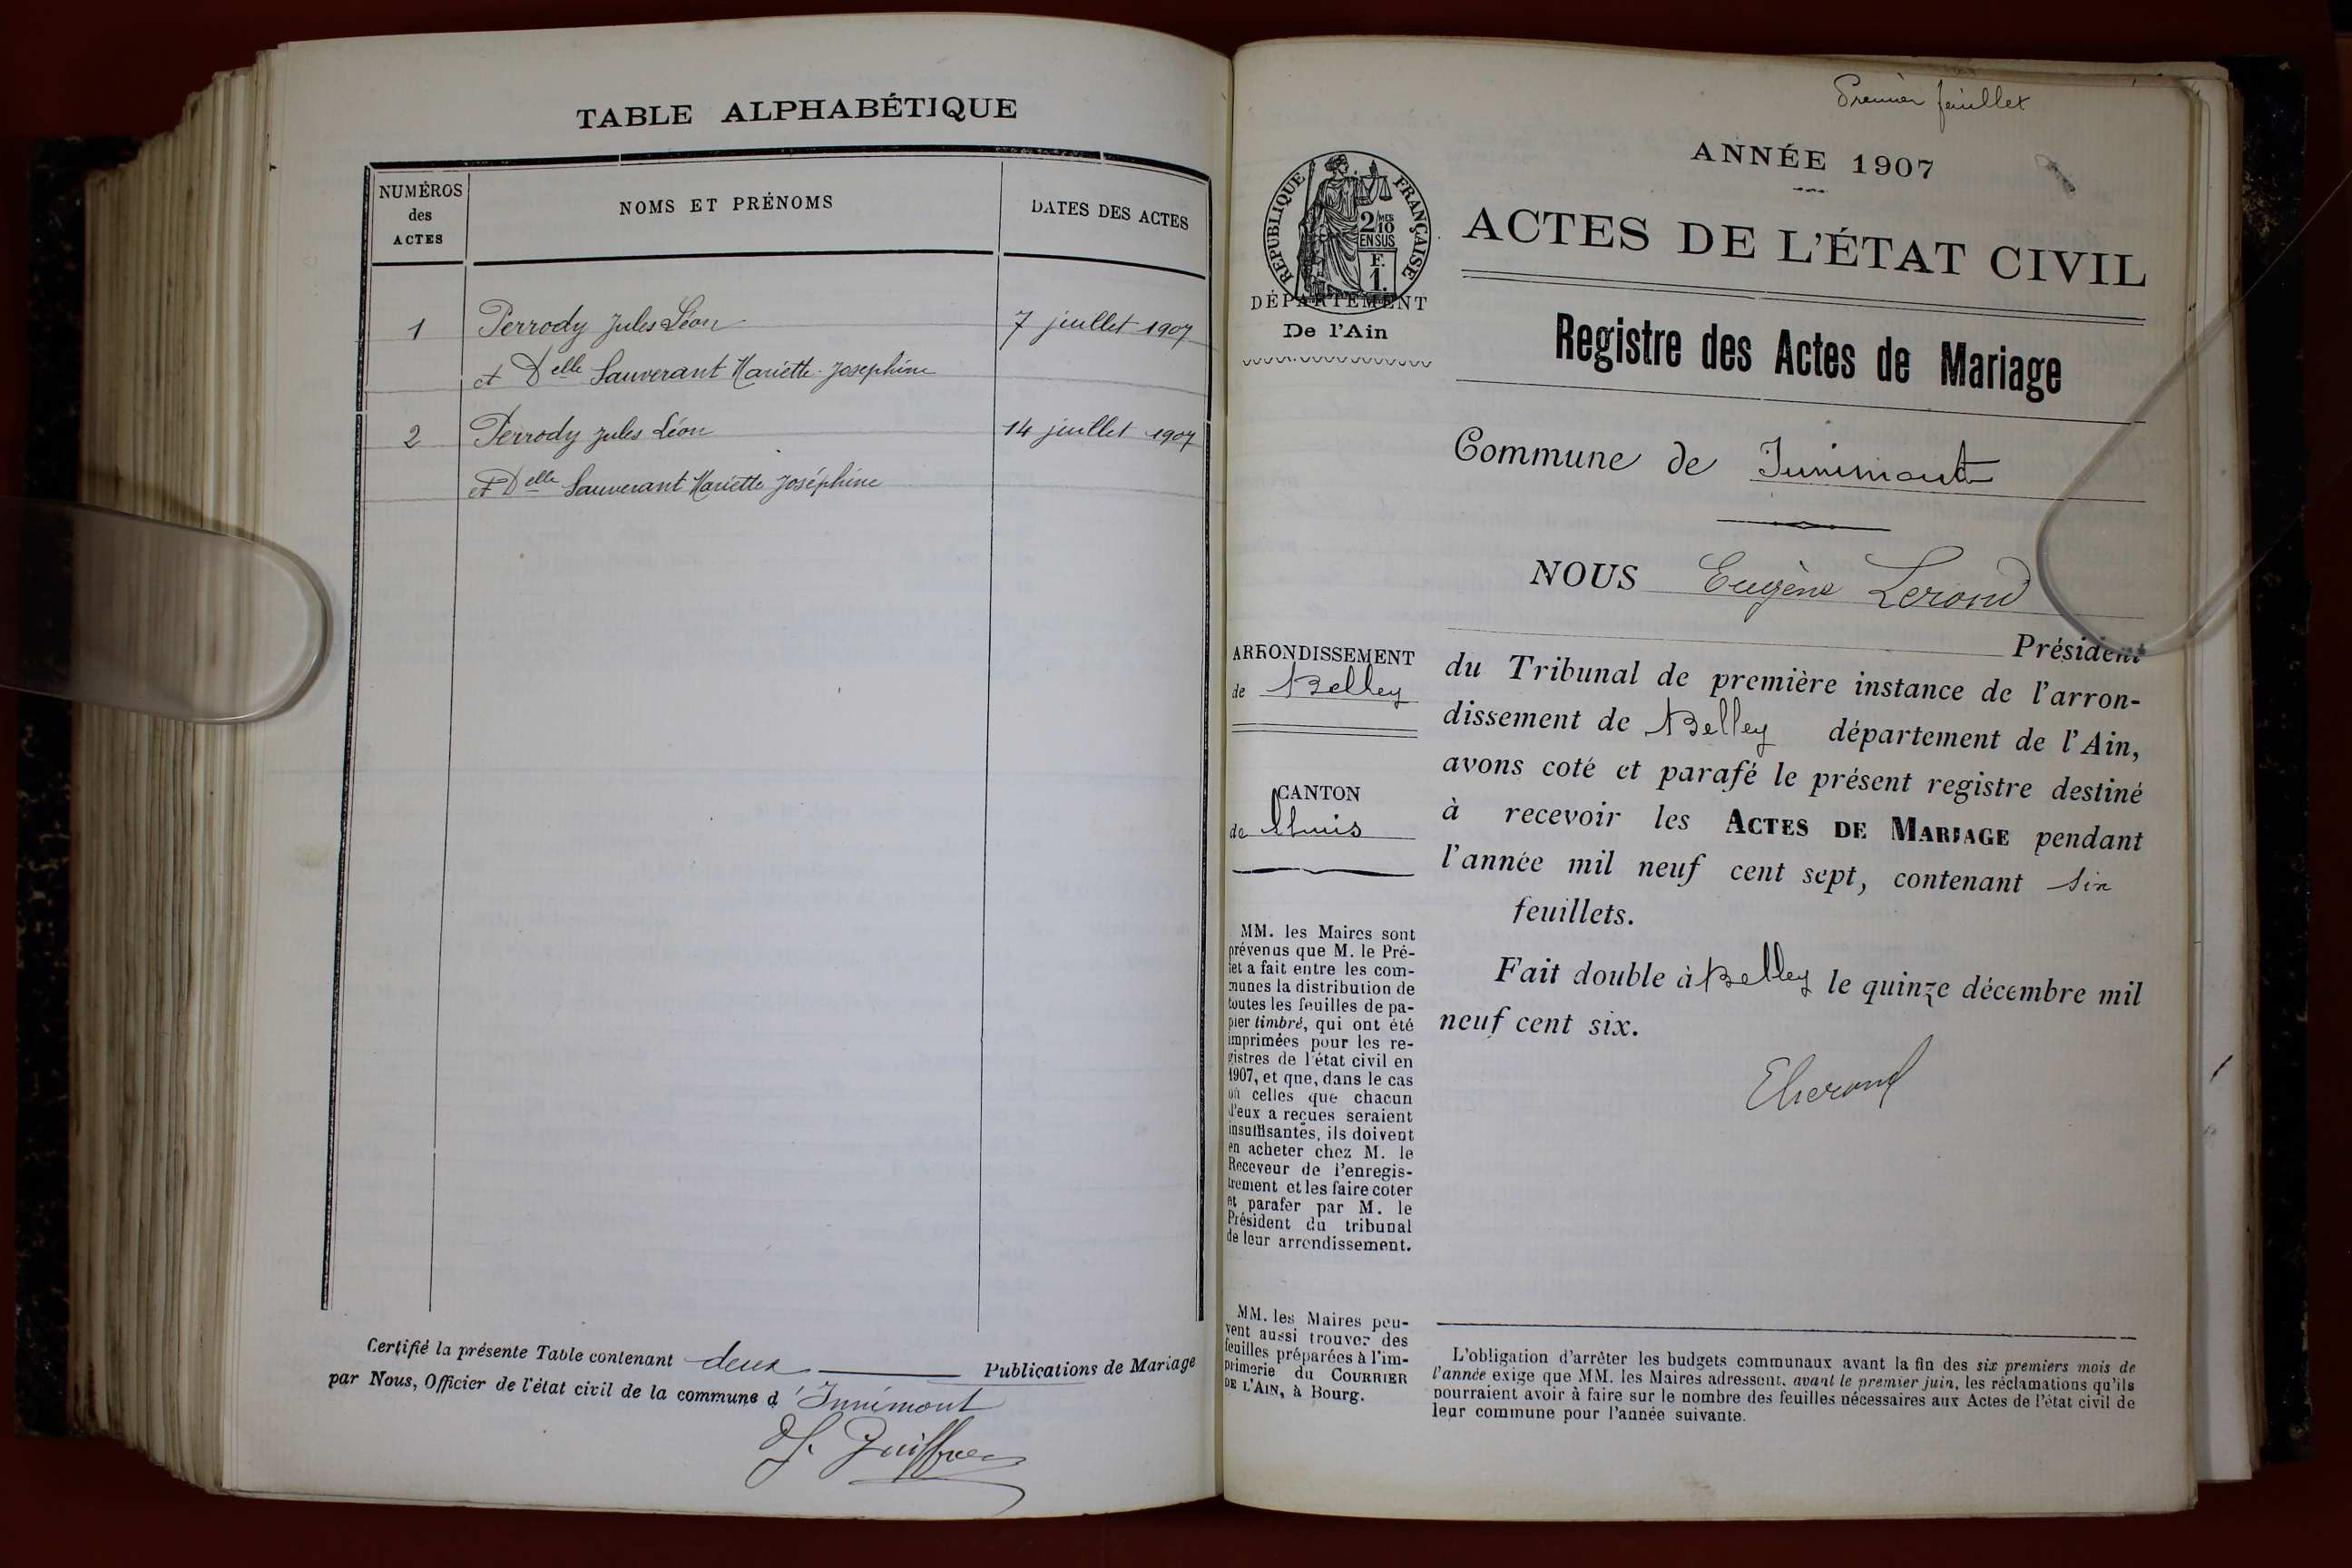 TABLE ALPHABÉTIQUE
NUMÉROS
des
ACTES
NOMS ET PRÉNOMS
DATES DES ACTES
1 Perrody Jules Léon 7 juillet 1907
et Delle Sauverant Mariette Josephine
2 Perrody Jules Léon 14 juillet 1907
et Delle Sauverant Mariette Joséphine
Certifié la présente Table contenant deux Publications de Mariage
par Nous, Officier de l'état civil de la commune d'Innimont
Premier feuillet
ANNÉE 1907
RÉPUBLIQUE FRANÇAISE
2/10
MES
EN SUS
F.
1.
DÉPARTEMENT
De l'Ain
ACTES DE L'ÉTAT CIVIL
Registre des Actes de Mariage
Commune de Innimont
NOUS Eugène Lerond
Président
du Tribunal de première instance de l'arron-
dissement de Belley département de l'Ain,
avons coté et parafé le présent registre destiné
à recevoir les ACTES DE MARIAGE pendant
l'année mil neuf cent sept, contenant six
feuillets.
Fait double à Belley le quinze décembre mil
neuf cent six.
ARRONDISSEMENT
de Belley
CANTON
de Lhuis
MM. les Maires sont
prévenus que M. le Pré-
fet a fait entre les com-
munes la distribution de
toutes les feuilles de pa-
pier timbré, qui ont été
imprimées pour les re-
gistres de l'état civil en
1907, et que, dans le cas
où celles que chacun
d'eux a reçues seraient
insuffisantes, ils doivent
en acheter chez M. le
Receveur de l'enregis-
trement et les faire coter
et parafer par M. le
Président du tribunal
de leur arrondissement.
MM. les Maires peu-
vent aussi trouver des
feuilles préparées à l'im-
primerie du COURRIER
DE L'AIN, à Bourg.
L'obligation d'arrêter les budgets communaux avant la fin des six premiers mois de
l'année exige que MM. les Maires adressent, avant le premier juin, les réclamations qu'ils
pourraient avoir à faire sur le nombre des feuilles nécessaires aux Actes de l'état civil de
leur commune pour l'année suivante.